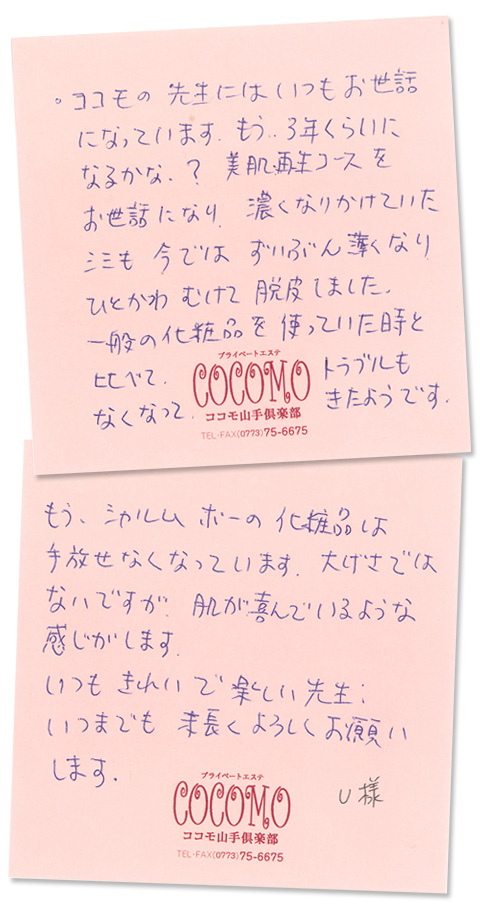 。ココモの 先生にはいつもお世話
になっています. もう.. 3年くらいに
なるかな.? 美肌再生コースを
お世話になり. 濃くなりかけていた
シミも 今では ずいぶん薄くなり.
ひとかわ むけて 脱皮しました.
一般の化粧品を 使っていた時と
比べて. トラブルも
なくなって. きたようです.
プライベートエステ
COCOMO
ココモ山手倶楽部
TEL・FAX(0773)75-6675
もう、シャルム ボーの 化粧品は
手放せなくなっています. 大げさでは
ないですが. 肌が喜んでいるような
感じがします.
いつも きれいで 楽しい先生;
いつまでも 末長くよろしくお願い
します.
プライベートエステ
COCOMO
ココモ山手倶楽部
TEL・FAX(0773)75-6675
U様